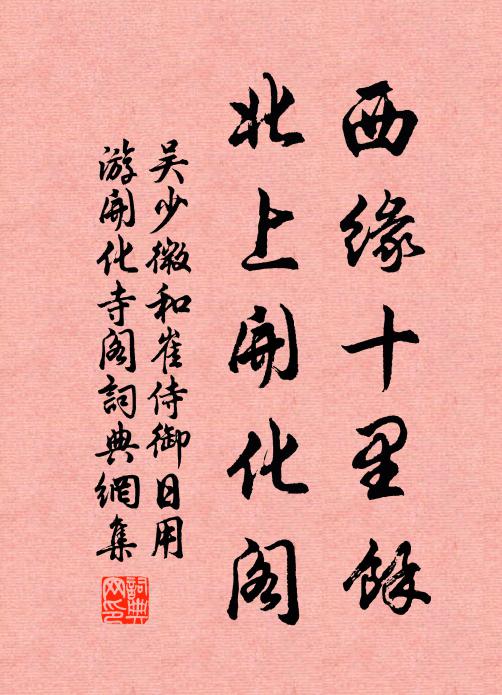 西緣十里餘
北上開化閣
吴少微和崔侍御日用
游開化寺阁詞典網集
詞典网印